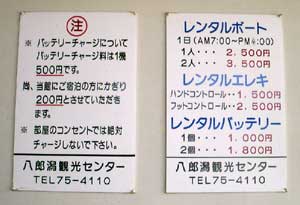 注
※ バッテリーチャージについて
バッテリーチャージ料は1機
500円です。
尚、当館にご宿泊の方にかぎり
200円とさせていただき
ます。
※ 部屋のコンセントでは絶対
チャージしないで下さい。
八郎潟観光センター
TEL75-4110
レンタルボート
1日(AM7:00~PM4:00)
1人 ‥‥ 2.500円
2人 ‥‥ 3.500円
レンタルエレキ
ハンドコントロール‥1.500円
フットコントロール‥2.500円
レンタルバッテリー
1個 ‥‥ 1.000円
2個 ‥‥ 1.800円
八郎潟観光センター
TEL75-4110